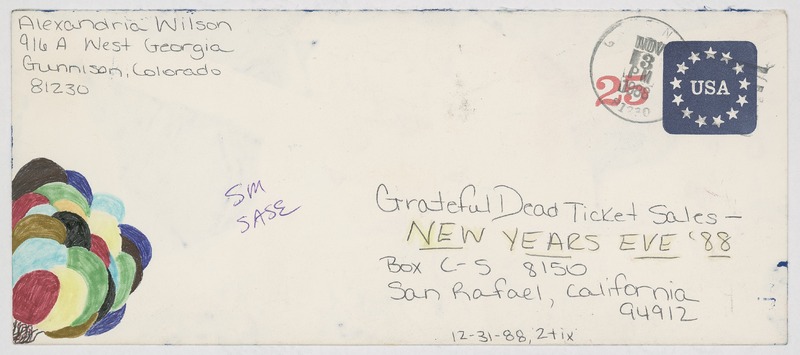 Alexandria Wilson
916 A West Georgia
Gunnison, Colorado
81230
NOV
PM
1988
81230
25
USA
SM
SASE
Grateful Dead Ticket Sales -
NEW YEARS EVE '88
Box C-S 8150
San Rafael, California
94912
12-31-88, 2tix